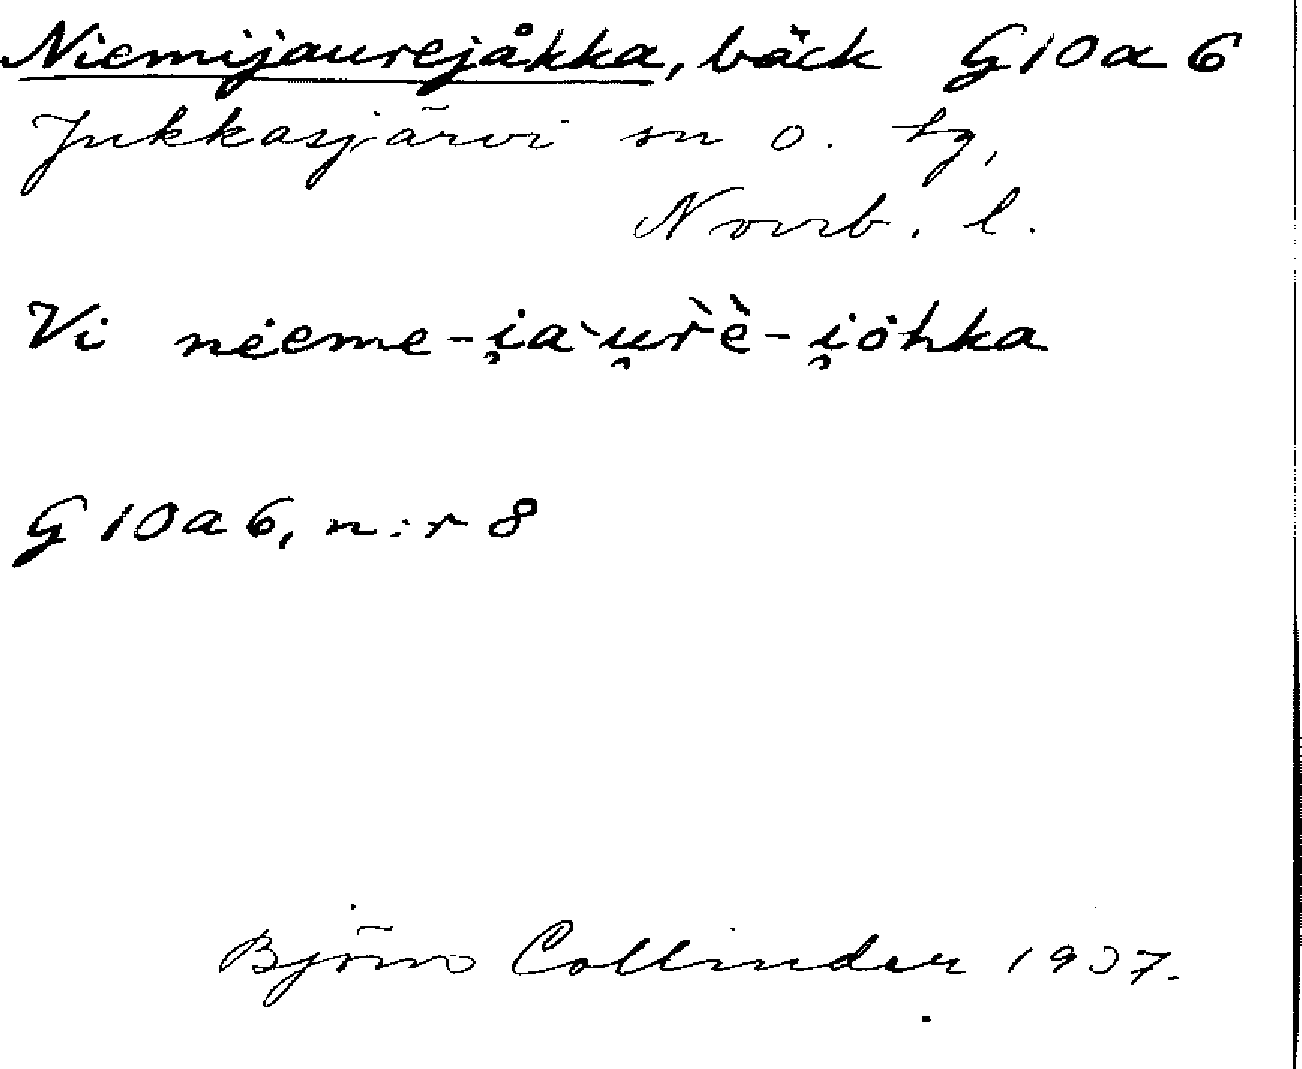 Niemijaurejåkka, bäck G10a6
Jukkasjärvi sn o. tg,
Norrb. l.
Vi nėeme-i̯a`u̯r̀ė̀-i̯ȯhka
G10a6, n:r 8
Björn Collinder 1937.